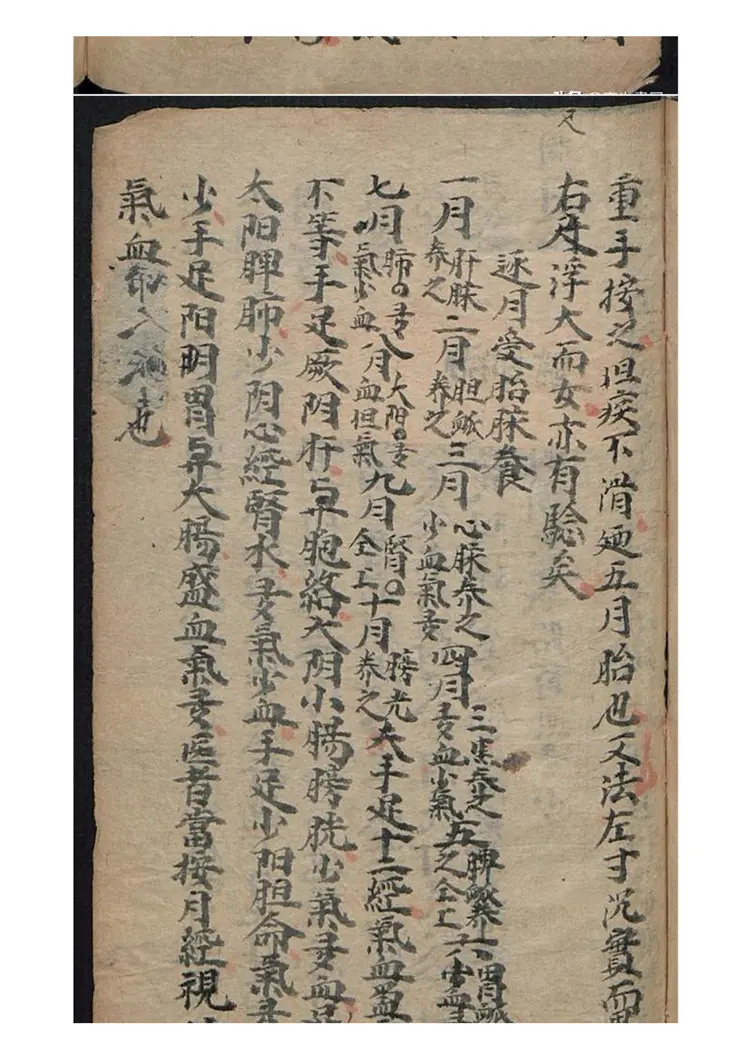 重手按之但疾不滑廼五月胎也又法左寸沉實而男
右尺浮大而女亦有驗矣
逐月受胎脉養
一月肝脉养之二月胆脉养之三月心脉养之少血氣多四月三焦养之多血少氣五脾脉养之仝上六胃脉少血多
七月肺多氣少血八月大阳多血但氣九月腎仝上十月膀光养之夫手足十二經氣血盈
不等手足厥阴肝与胞絡太阴小腸膀胱少氣多血足
太阳脾肺少阴心經腎水多氣少血手足少阳胆命氣多
少手足阳明胃与大腸盛血氣多医者當按月經視
氣血
也